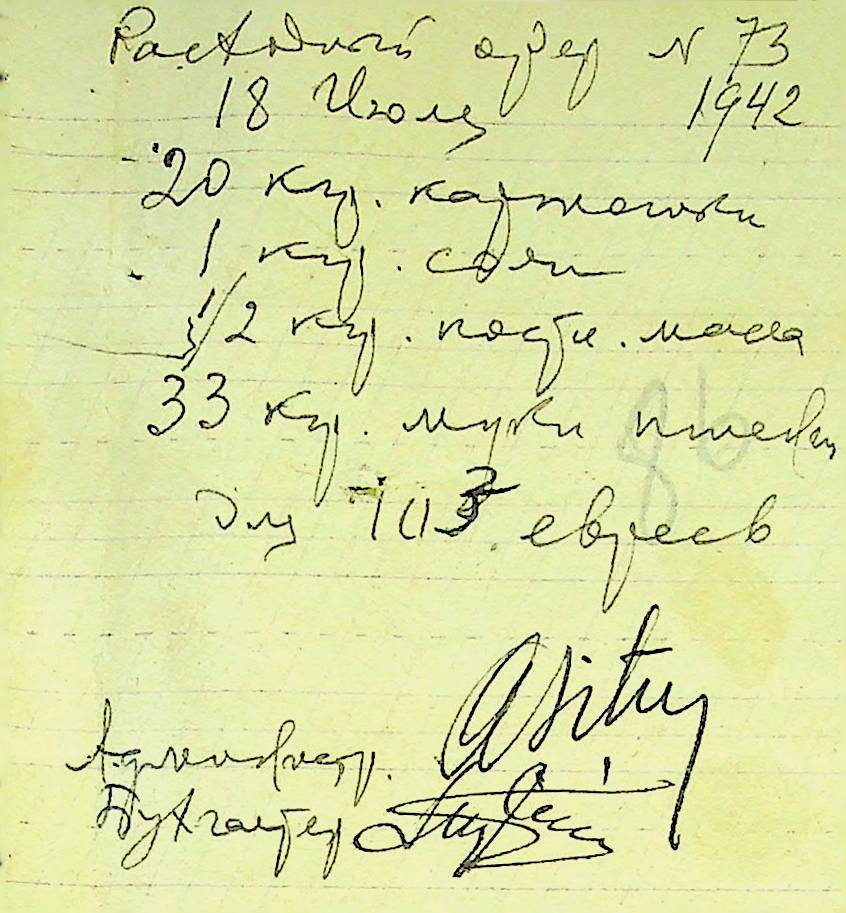 Расходный ордер N 73
18 Июля 1942
20 кгр. картошки
1 кгр. соли
1/2 кгр. постн. масла
33 кгр. муки пшеничн
для 103 евреев
Администр.
Бухгалтер